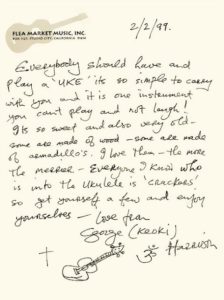 FLEA MARKET MUSIC, INC.
2/2/99.
Everybody should have and
play a 'UKE' its so simple to carry
with you and it is one instrument
you cant play and not laugh!
Its so sweet and also very old -
some are made of wood - some are made
of armadillo's. I love them - the more
the merrier - Everyone I know who
is into the Ukulele is 'CRACKERS'
so get yourself a few and enjoy
yourselves - Love from
George (Keoki)
Harrison
ॐ